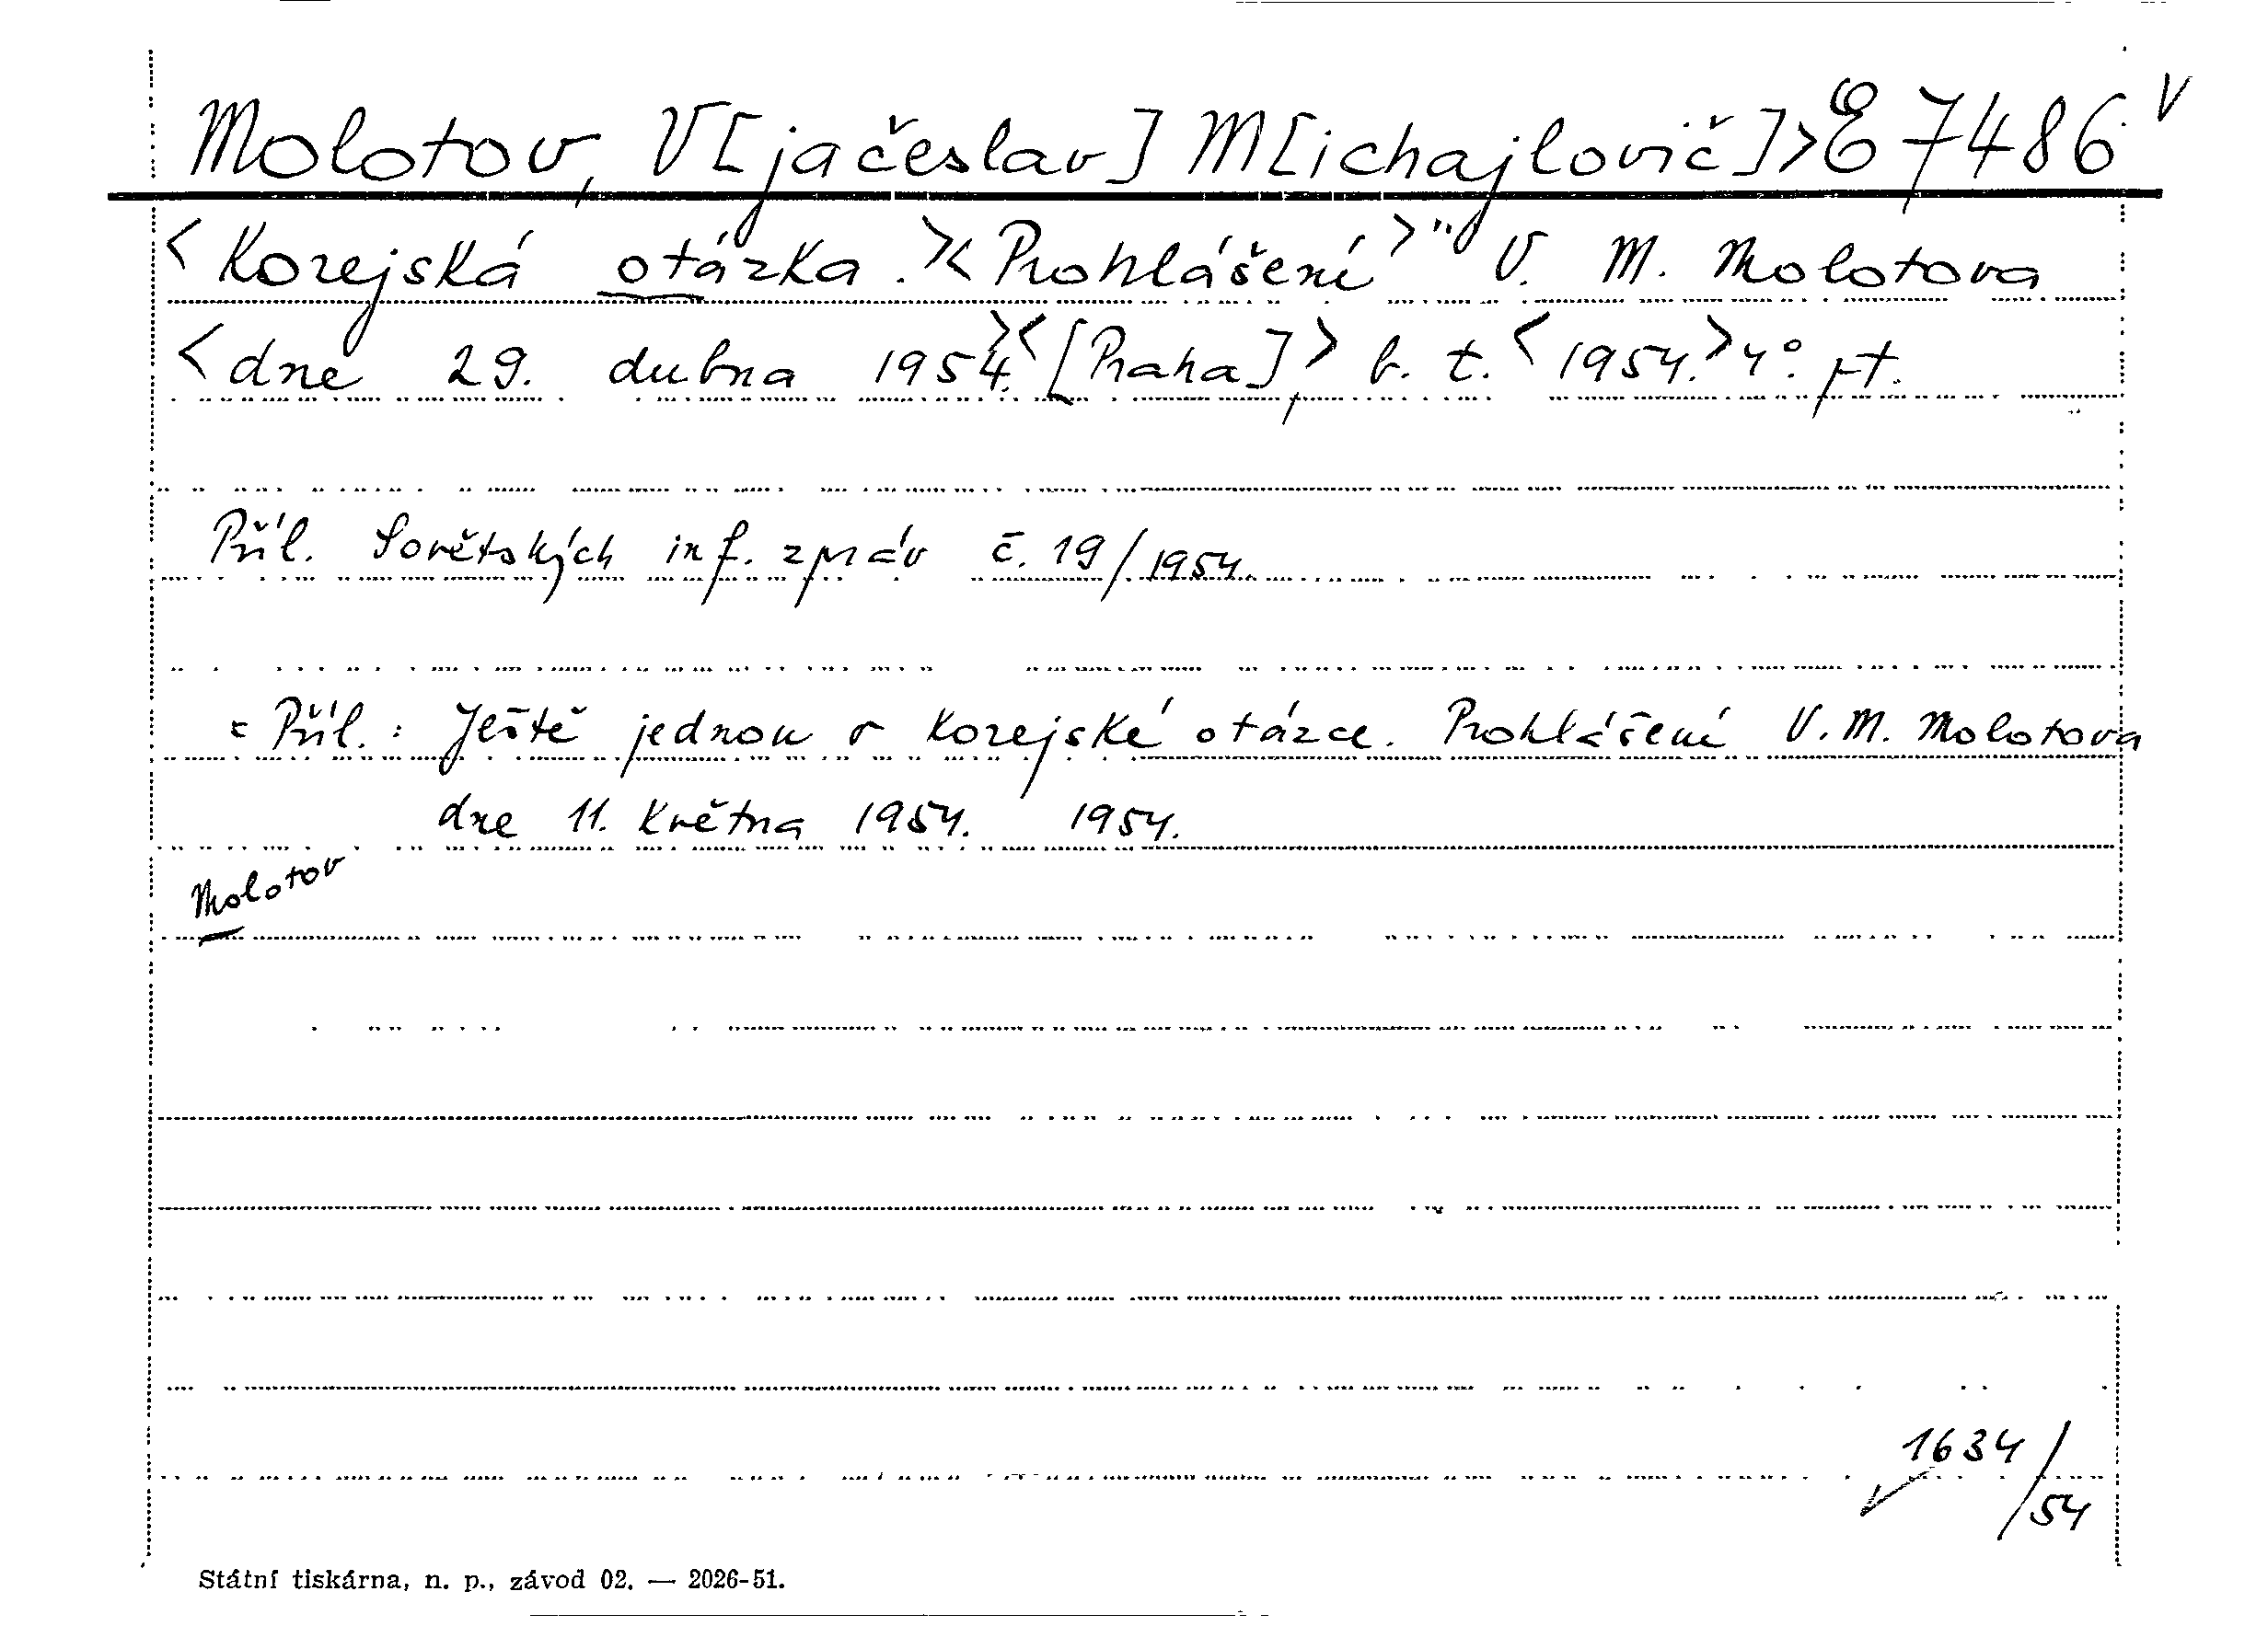 Molotov, V[jačeslav] M[ichajlovič]> E 7486 v
<Korejská otázka.><Prohlášení>" V. M. Molotova
<dne 29. dubna 1954.><[Praha],> b. t. <1954.> 4°. pt.
Příl. Sovětských inf. zpráv č. 19/1954.
= Příl.: Ještě jednou o korejské otázce. Prohlášení V. M. Molotova
dne 11. května 1954. 1954.
Molotov
1634/54
Státní tiskárna, n. p., závod 02. — 2026-51.